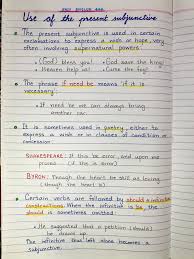 Use of the present subjunctive
• The present subjunctive is used in certain
exclamations to express a wish or hope, very
often involving supernatural powers:
• (God) bless you! • God save the king!
• Heaven help us! • Curse this fog!
• The phrase if need be means 'if it is
necessary':
If need be we can always bring
another car.
• It is sometimes used in poetry, either to
express a wish or in clauses of condition or
concession:
SHAKESPEARE: If this be error, and upon me
proved. (if this is error)
BYRON: Though the heart be still as loving
(though the heart is)
• Certain verbs are followed by should + infinitive
constructions. When the infinitive is be, the
should is sometimes omitted:
He suggested that a petition (should)
be drawn up.
The infinitive thus left alone becomes a
subjunctive.